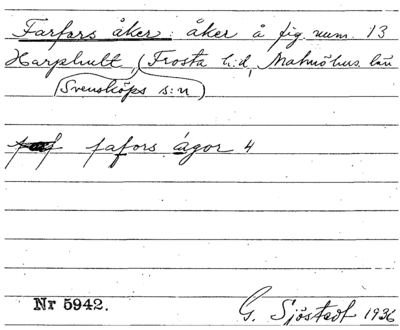 Farfars åker: åker å fig. num. 13
Harphult, Frosta h:d, Malmöhus län
Svensköps s:n
fafors ágor 4
Nr 5942.
G. Sjöstedt 1936